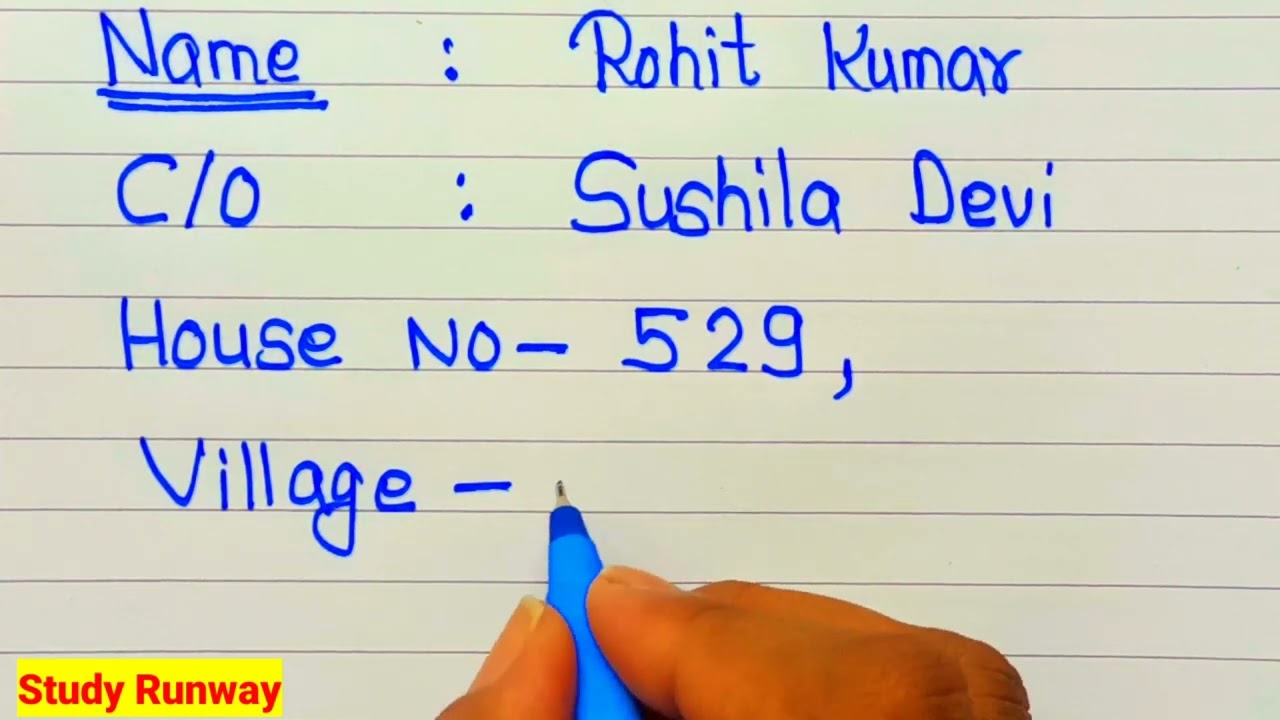 Name : Rohit Kumar
C/O : Sushila Devi
House No- 529,
Village -
Study Runway